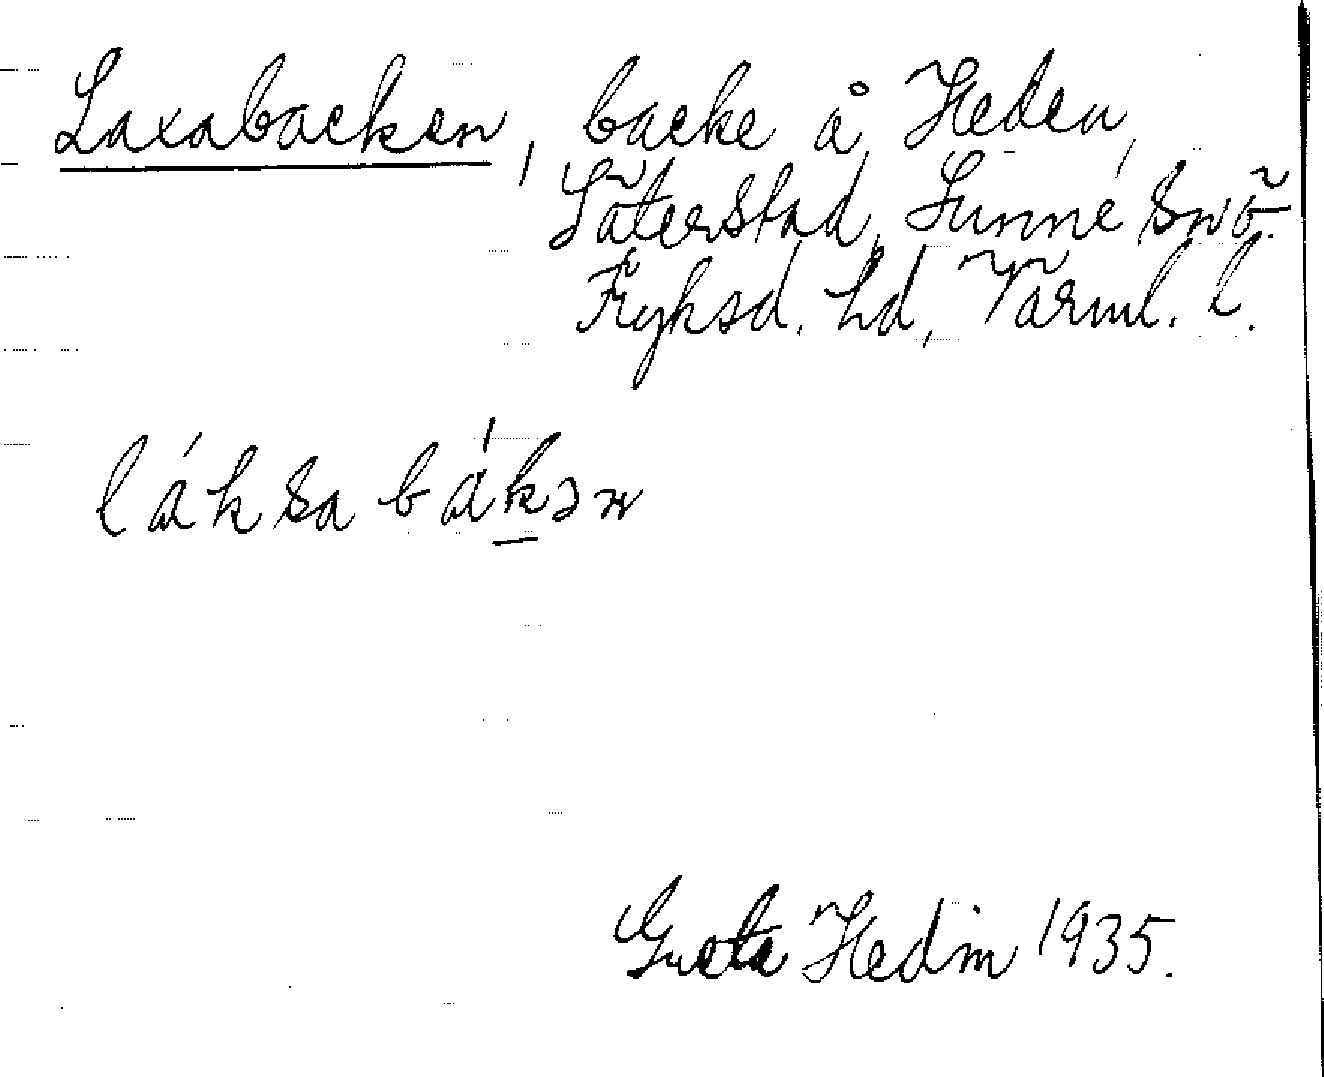 Laxabacken, backe å Heden,
Säterstad, Sunne snö.
Fryksd. hd, Värml. l.
láksabákən
Greta Hedin 1935.